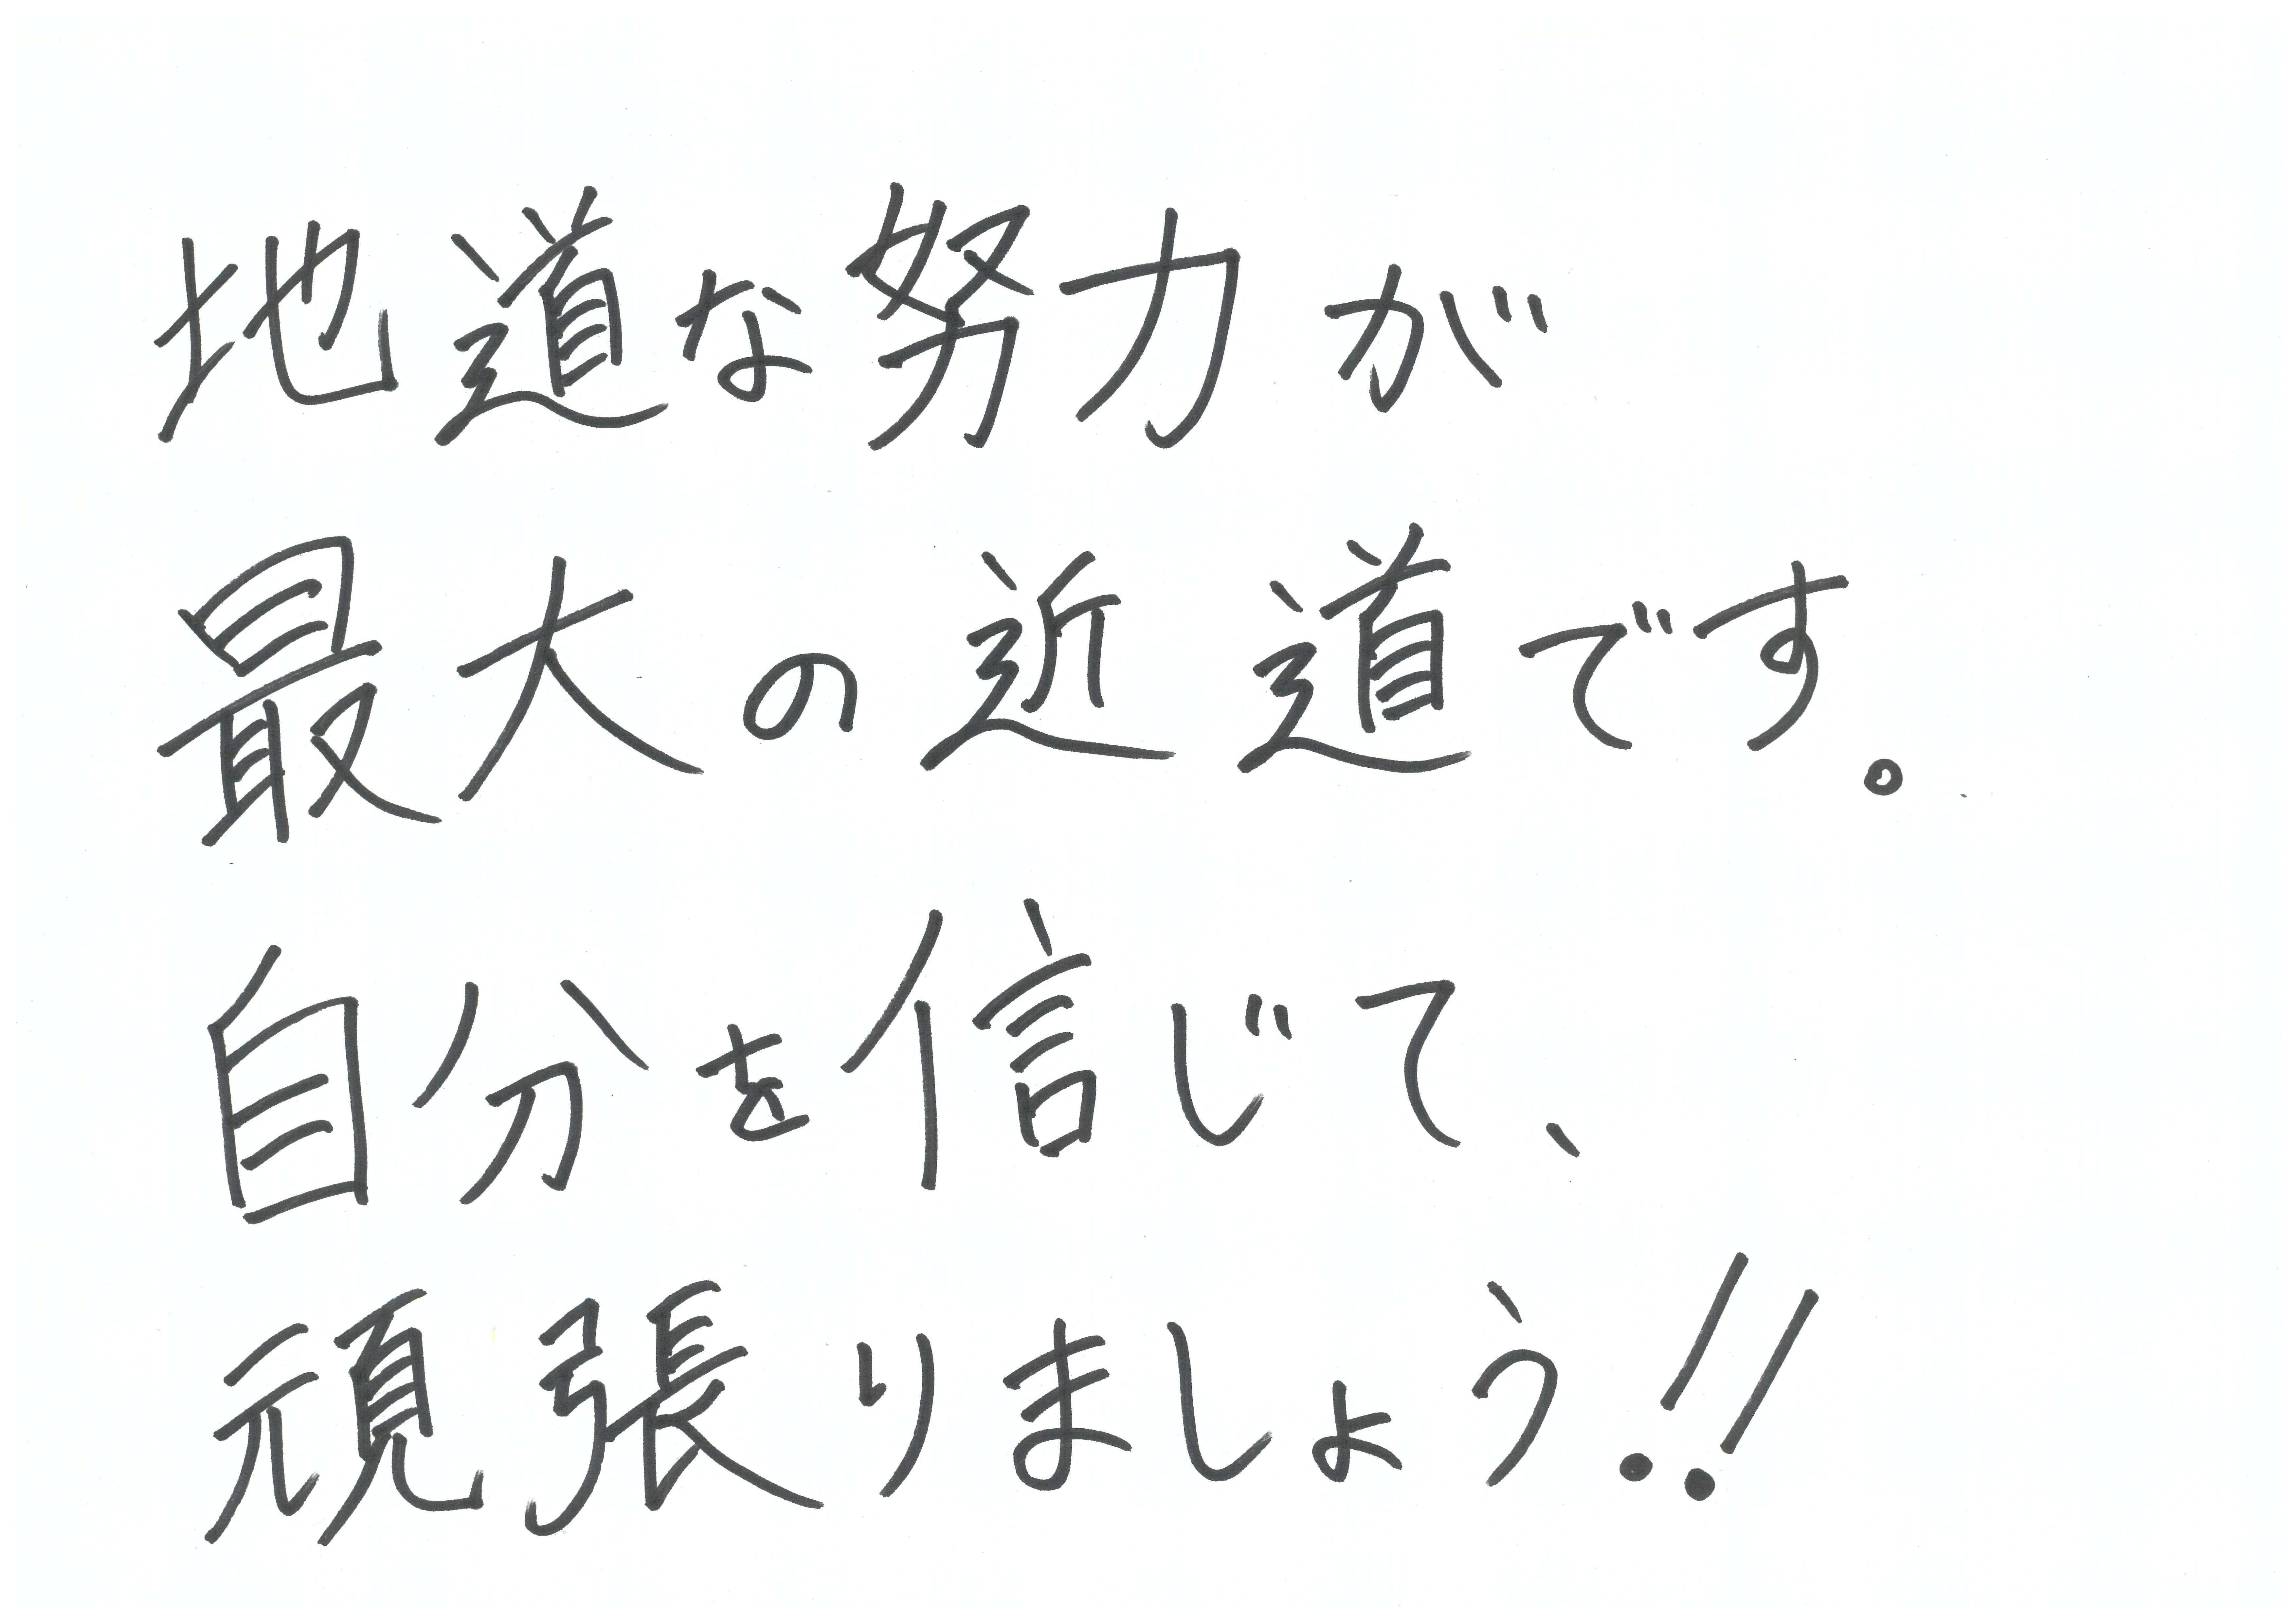 地道な努力が
最大の近道です。
自分を信じて、
頑張りましょう!!